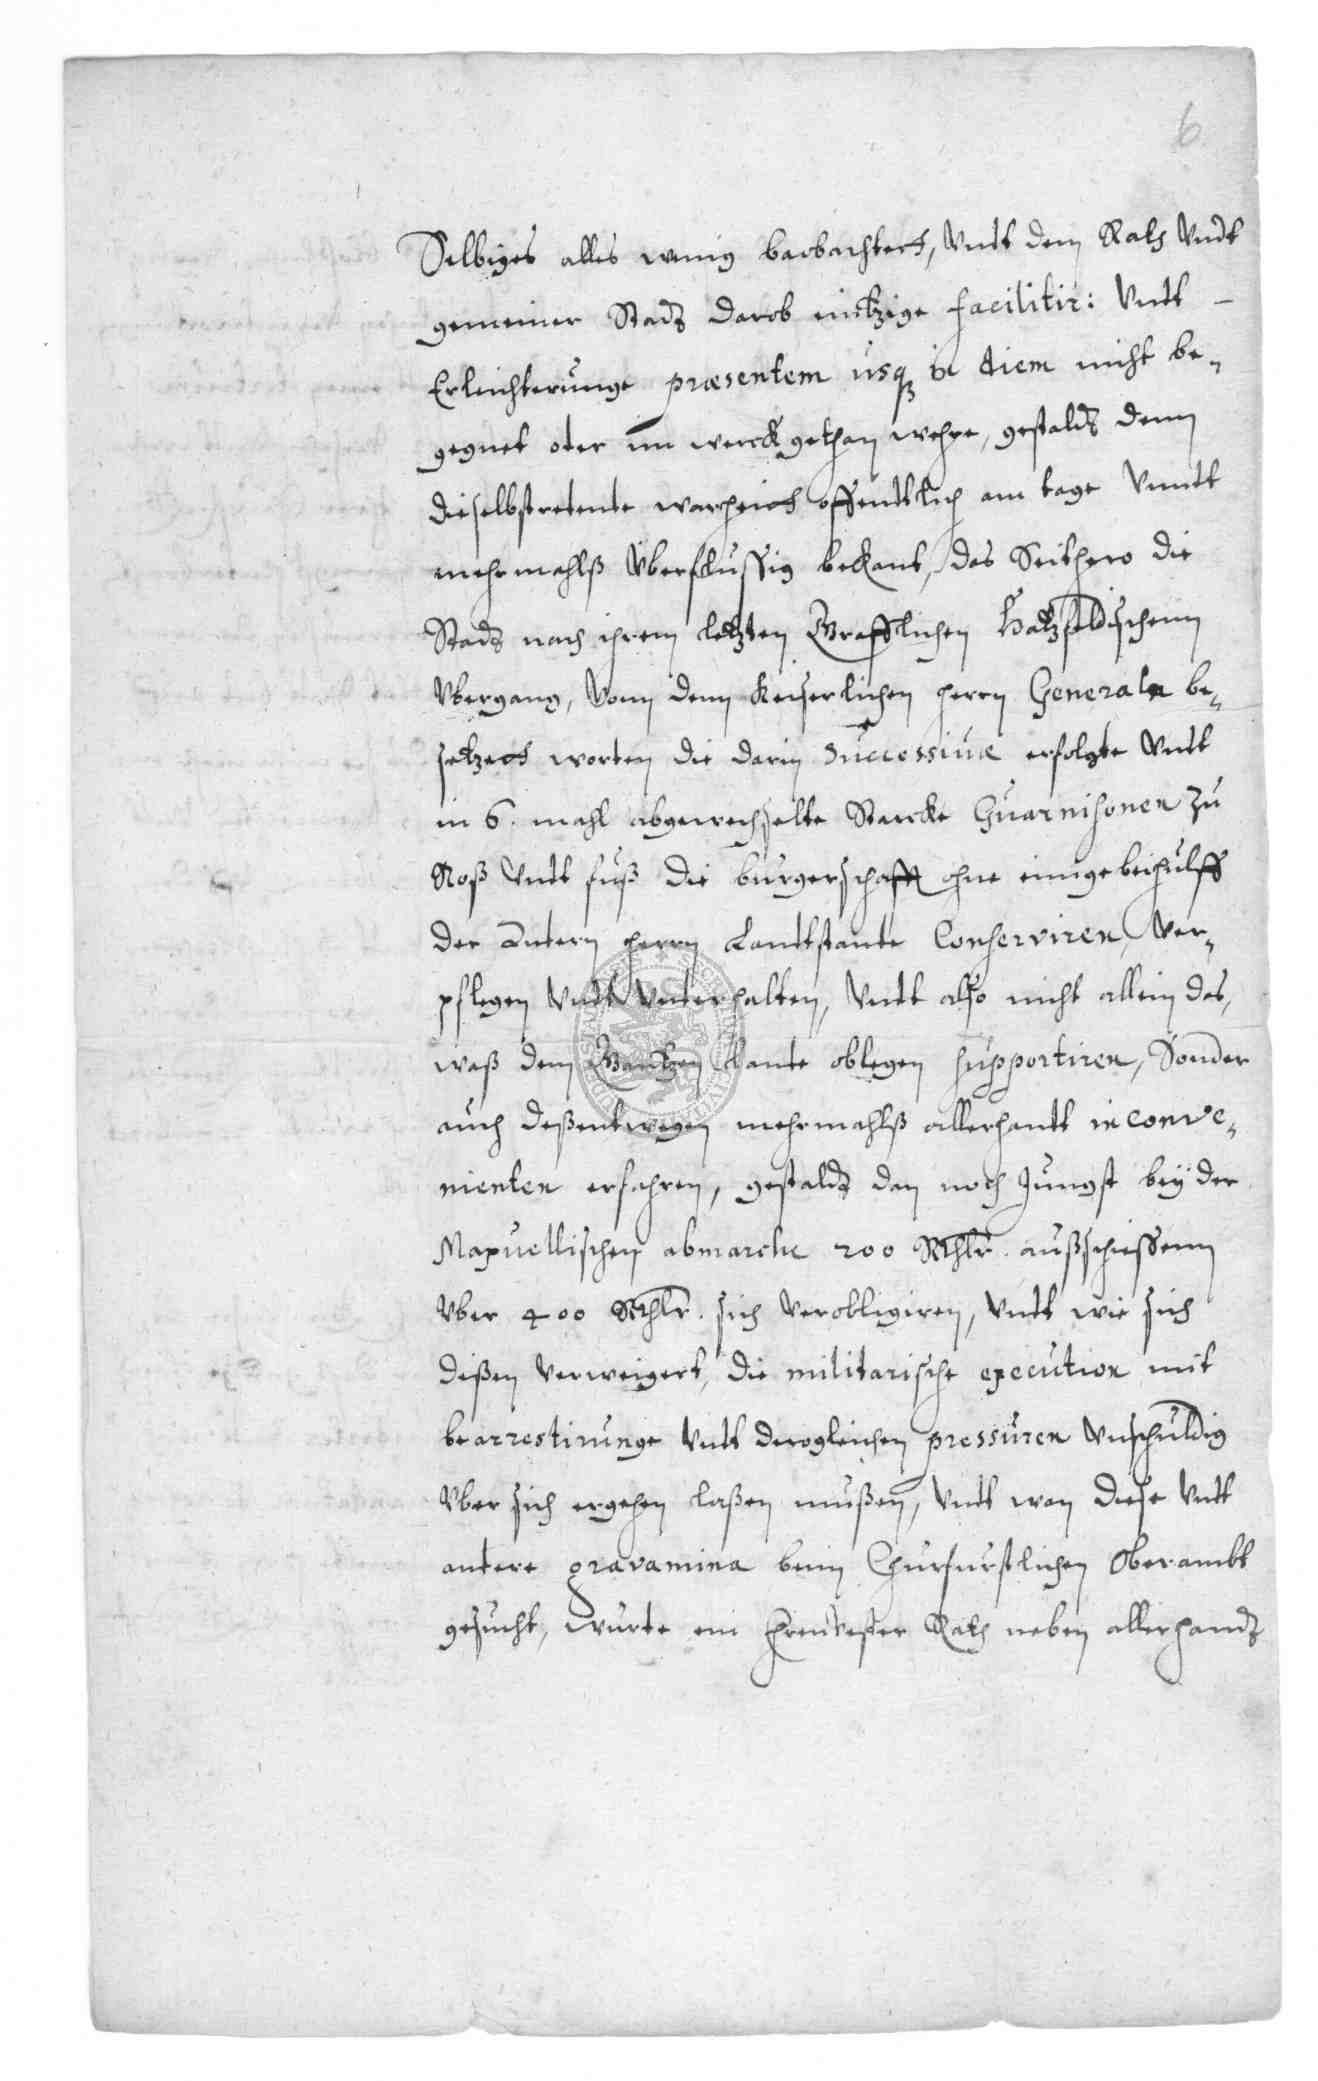 6
Selbiges alles wenig beobachtett, Undt dem Rath Undt
gemeiner Stadt darob eintzige facilitir: Undt –
Erleichterunge præsentem usq in diem nicht be-
gegnet oder im werck gethan wehre, gestaldt denn
die selbstredente warheidt offentlich am tage Unndt
mehrmahlß Uberflussig bekant, das Seithero die
Stadt nach ihrem letzten Grafflichen Hatzfeldischenn
Ubergang, Vonn denn Keiserlichen herrn Generaln be-
setzett worden die darin Successiue erfolgte Undt
in 6. mahl abgewechselte Starcke Guarnisonen Zu
Roß Undt fuß die burgerschafft ohne einige beihulff
der andern herrn Landtstande Conserviren, Ver-
pflegen Undt Unterhalten, Undt also nicht allein das,
waß dem Gantzen Lande oblegen supportiren, Sonder
auch deßentwegen mehrmahlß allerhandt inconve-
nienten erfahren, gestaldt dan noch Jungst beÿ der
Maxuellischen abmarche 200 Rthlr. außschiessenn
Uber 400 Rthlr. sich Verobligiren, Undt wie sich
dißen Verweigert, die militarische execution mit
bearrestirunge Undt derogleichen pressuren Unschuldig
Uber sich ergehen laßen mußen, Undt wan diese Undt
andere gravamina beim Churfurstlichen Oberambt
gesucht, wurde ein Ehrenvester Rath neben allerhandt